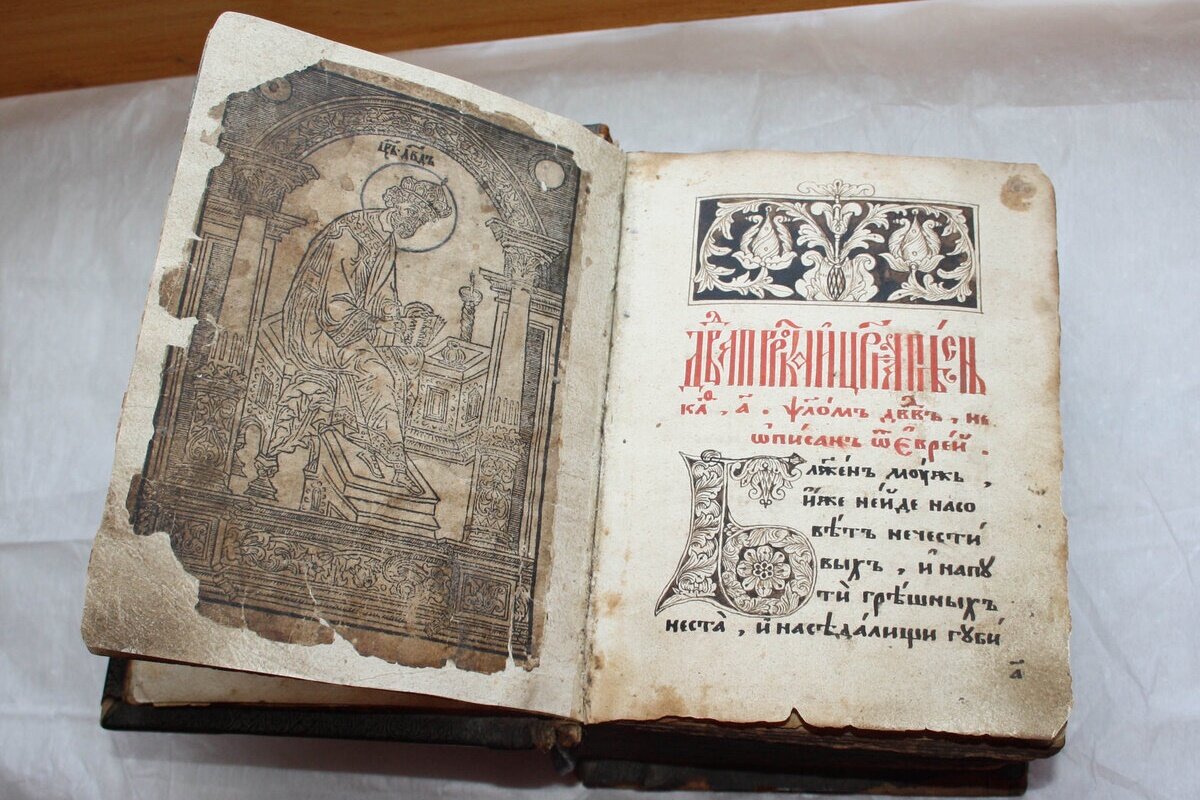 цр҃ь двд҃ъ
Дв҃да прⷪ҇рка и҆ цр҃ѧ пѣсн
каѳ, а҃. ѱло́мъ дв҃двъ, не
ѡписанъ ѿ є҆вре́й.
Блаже́нъ моу́жь,
и҆́же не и҆́де насо
вѣ́тъ нечести́
выхъ, и҆ напꙋ
тѝ грѣ́шныхъ
неста̀, и҆ насѣда́лищи гꙋби́
а҃